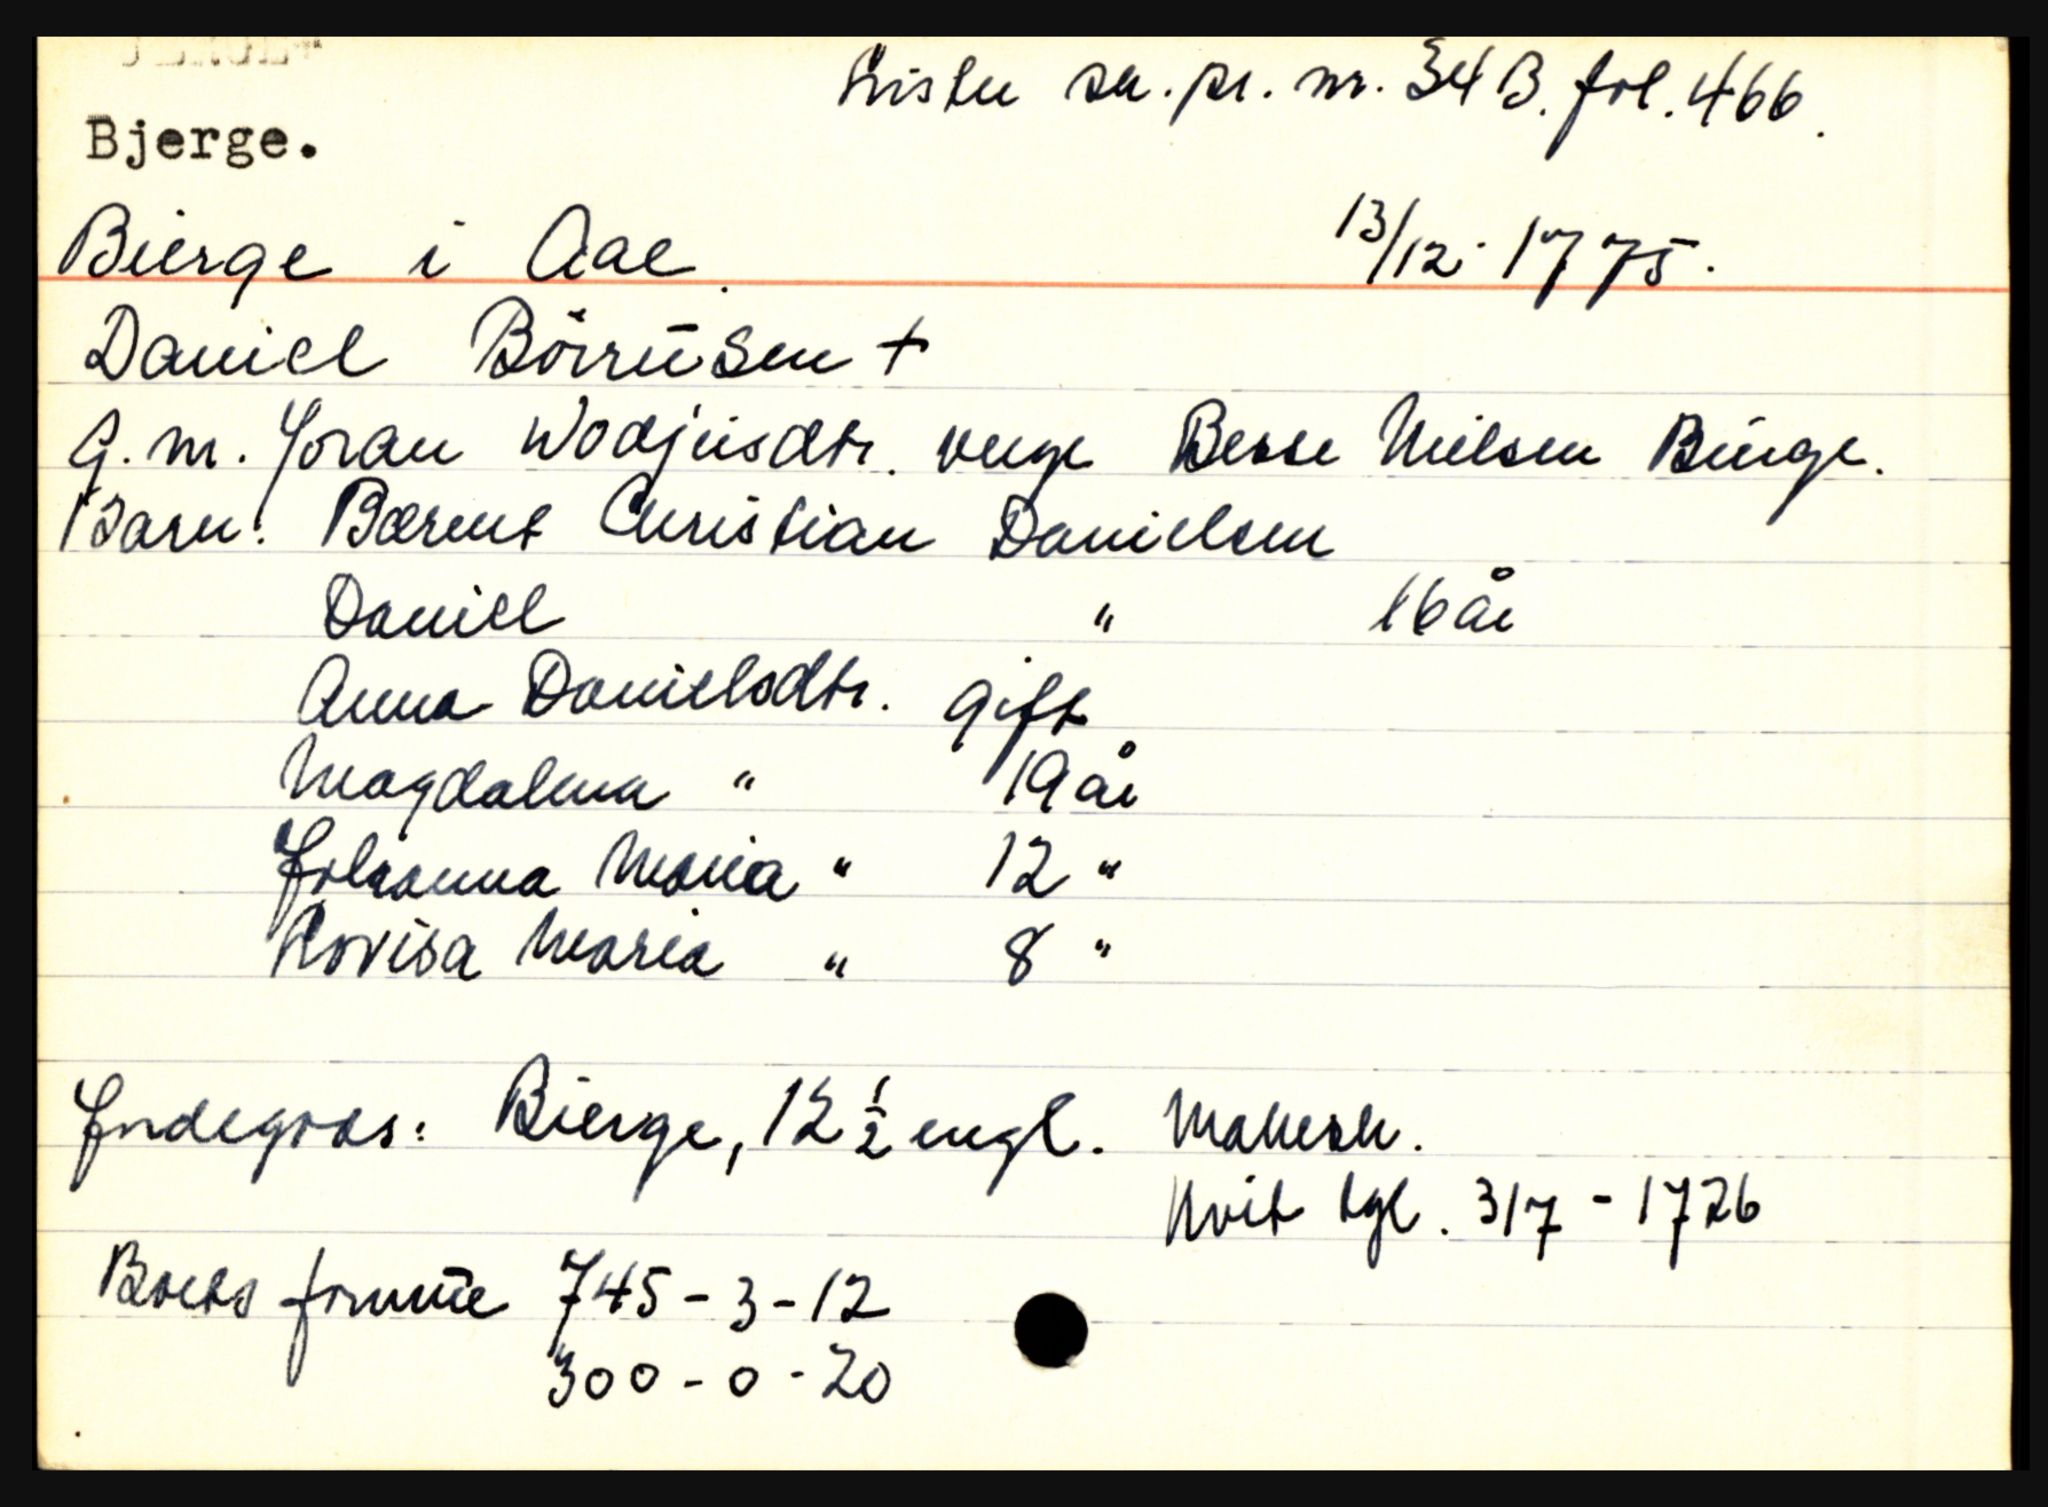 Lister sk. pr. nr. 34 B. fol. 466.
Bjerge.
Bierge i Aae. 13/12. 1775.
Daniel Börresen +
G. m. Joran Wodjusdtr. verge Berse Nielsen Bierge.
Barn: Bærent Christian Danielsen
Daniel " 16 år
Anna Danielsdtr. gift
Magdalena " 19 år
Johanna Maria " 12 "
Lovisa Maria " 8 "
Jordegods: Bierge, 12 1/2 engl. Makesk.
Kvit tgl. 3/7 - 1726
Boets formue 745 - 3 - 12
300 - 0 - 20